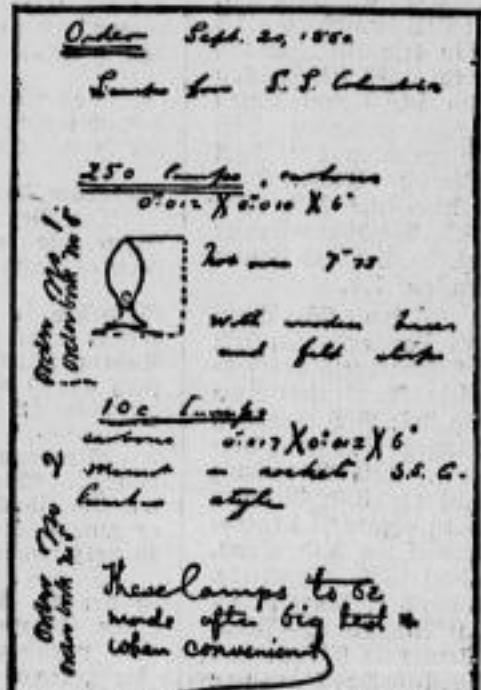 Order Sept. 20, 1880
Lamps for S. S. Columbia
250 Lamps, carbons
0".012 X 0".010 X 6"
Not over
With wooden bases
and felt strips
Order No 1
order book No 8
100 Lamps
carbons 0".017 X 0".012 X 6"
Mount in sockets, S. E. C.
style
Order No 2
order book No 8
These lamps to be
made after big test &
when convenient